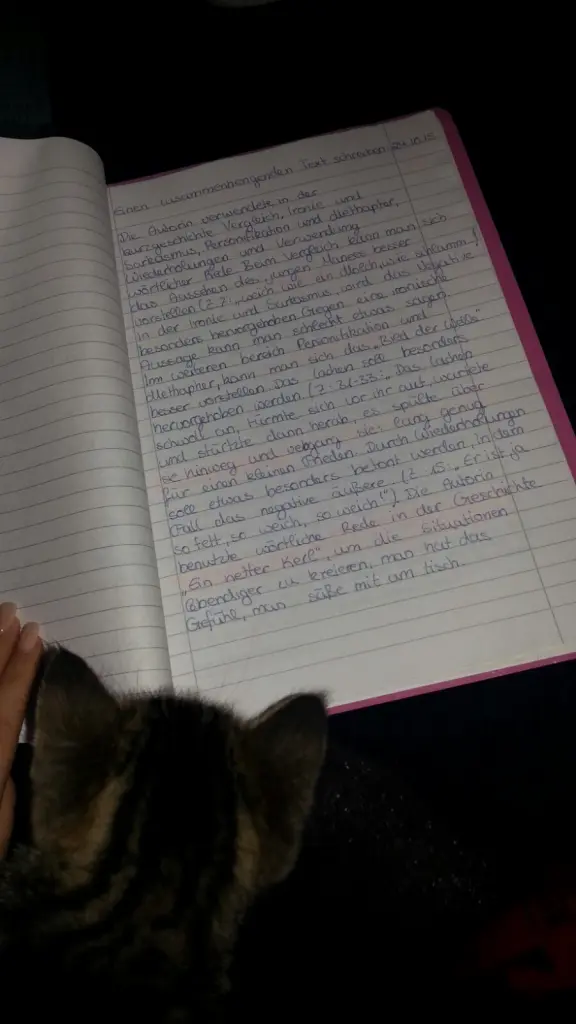 Einen zusammenhängenden Text schreiben 24.10.15
Die Autorin verwendete in der
Kurzgeschichte Vergleich, Ironie und
Sarkasmus, Personifikation und Methapher,
Wiederholungen und Verwendung
wörtlicher Rede. Beim Vergleich kann man sich
das Aussehen des jungen Mannes besser
vorstellen (Z.7: „weich wie ein Molch, wie Schlamm!"
in der Ironie und Sarkasmus, wird das Negative
besonders hervorgehoben. Gegen eine ironische
Aussage kann man schlecht etwas sagen.
Im weiteren bereich Personifikation und
Methapher, kann man sich das „Bild der Größe"
besser vorstellen. Das Lachen soll besonders
hervorgehoben werden (Z: 31-33: „Das Lachen
schwoll an, türmte sich vor ihr auf, wartete
und stürtzte dann herab, es spülte über
sie hinweg und verbarg sie: lang genug
für einen kleinen Frieden. Durch Wiederholungen
soll etwas besonders betont werden, in dem
Fall das negative äußere (Z 15: „Er ist ja
so fett, so weich, so weich!") Die Autorin
benutzte wörtliche Rede in der Geschichte
„Ein netter Kerl", um die Situationen
lebendiger zu kreieren, man hat das
Gefühl, man säße mit am tisch.